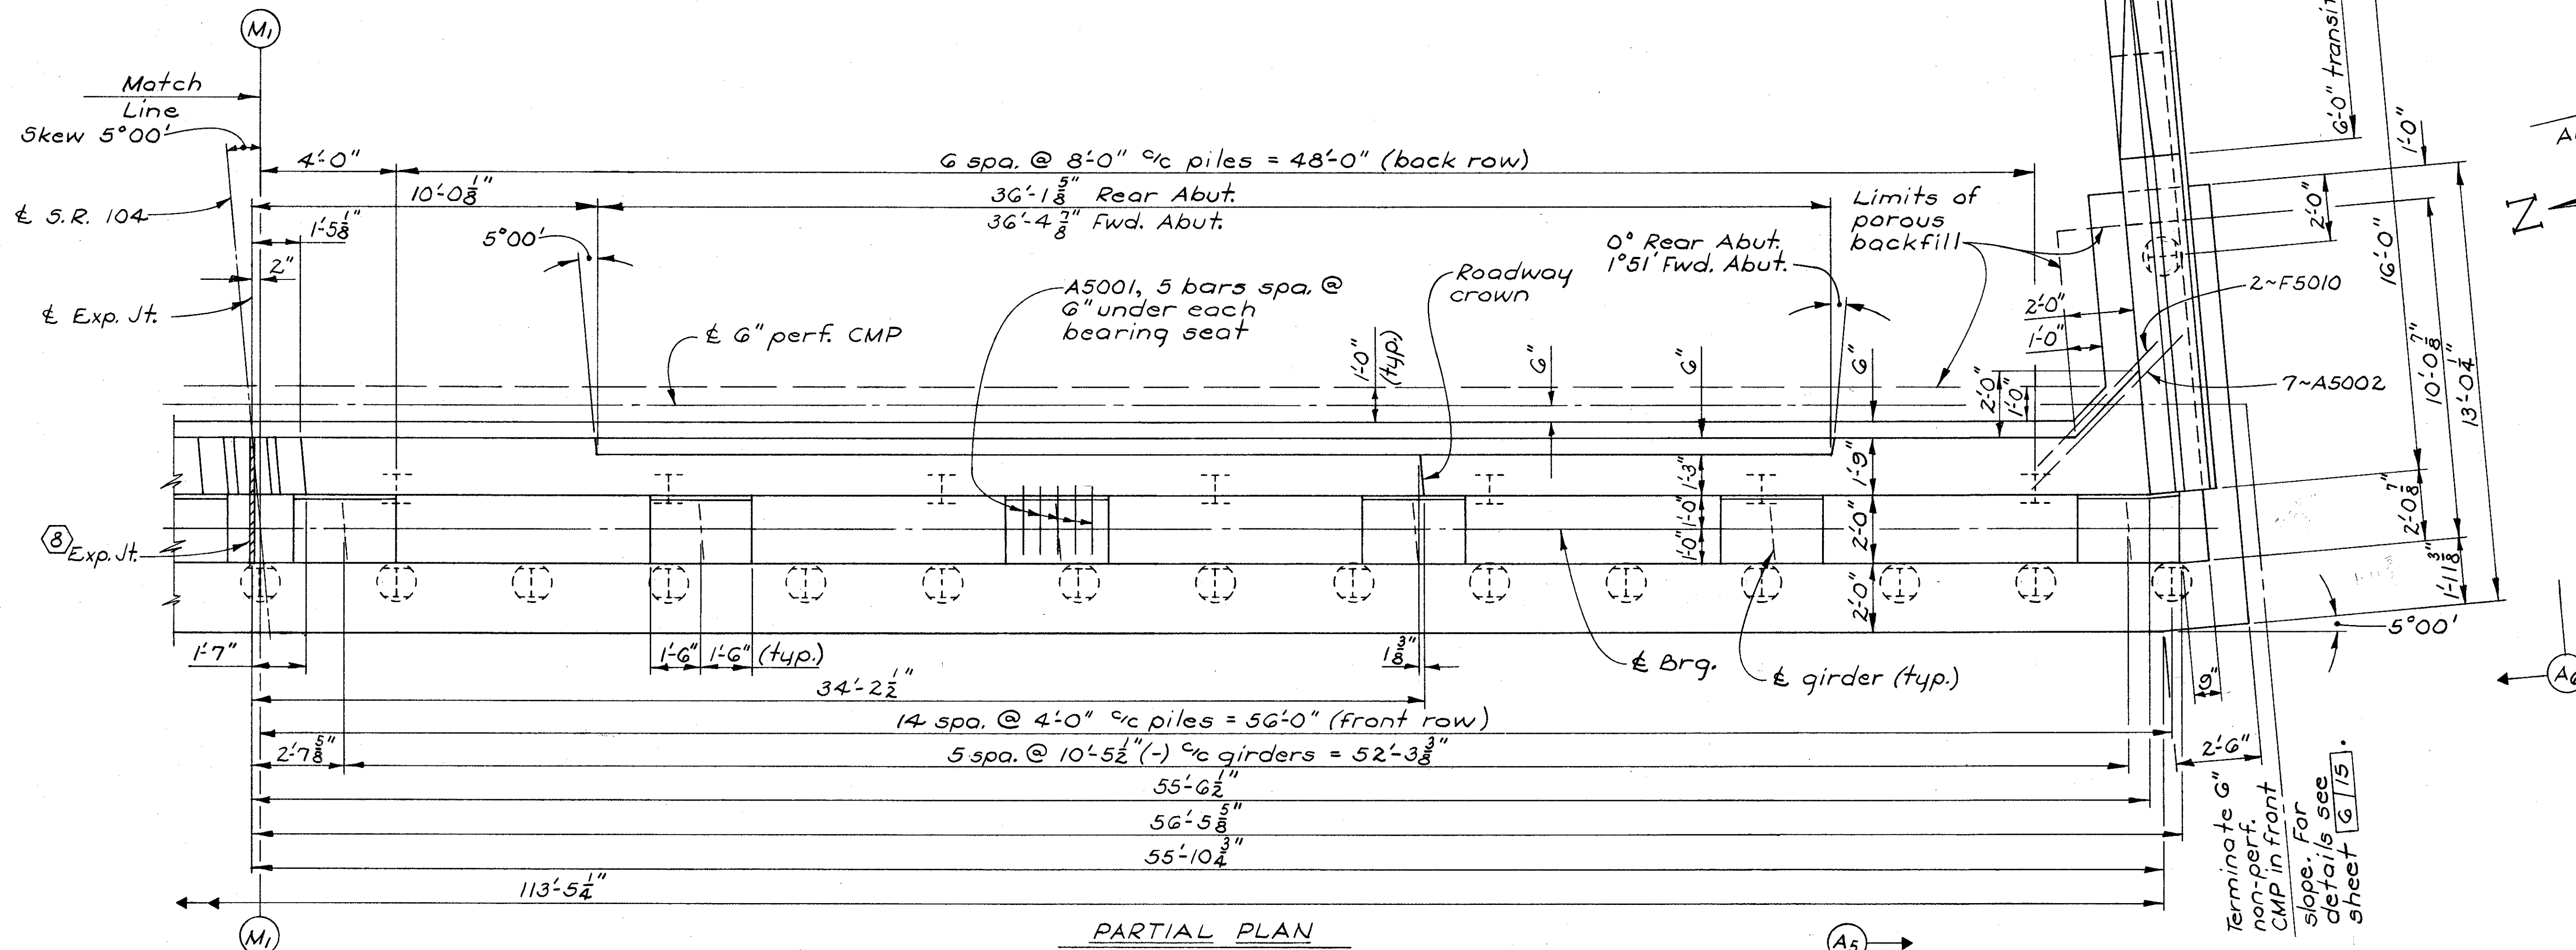 M1
Match
Line
Skew 5°00'
₵ S.R. 104
₵ Exp. Jt.
2"
1'-5 1/8"
4'-0"
6 spa. @ 8'-0" c/c piles = 48'-0" (back row)
10'-0 1/8"
36'-1 5/8" Rear Abut.
36'-4 7/8" Fwd. Abut.
5°00'
₵ 6" perf. CMP
A5001, 5 bars spa. @
6" under each
bearing seat
Roadway
crown
0° Rear Abut.
1°51' Fwd. Abut.
Limits of
porous
backfill
1'-0"
(typ.)
6"
6"
6"
2'-0"
1'-0"
2'-0"
1'-0"
2'-0"
6'-0" transit
1'-0"
16'-0"
2~F5010
7~A5002
10'-0 7/8"
13'-0 1/4"
2'-0 7/8"
1'-11 3/8"
N
1'-3"
1'-9"
1'-0"
1'-0"
2'-0"
2'-0"
8
Exp. Jt.
1'-7"
1'-6"
1'-6" (typ.)
1 3/8"
₵ Brg.
₵ girder (typ.)
5°00'
9"
2'-6"
34'-2 1/2"
14 spa. @ 4'-0" c/c piles = 56'-0" (front row)
2'-7 5/8"
5 spa. @ 10'-5 1/2" (-) c/c girders = 52'-3 3/8"
55'-6 1/2"
56'-5 5/8"
55'-10 3/4"
113'-5 1/4"
Terminate 6"
non-perf.
CMP in front
slope. For
details see
sheet 6 15.
M1
PARTIAL PLAN
A5
A6